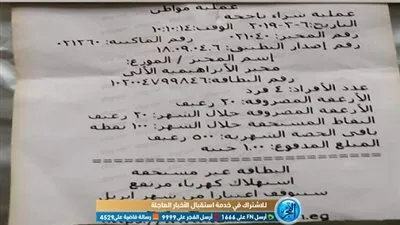 عملية مواطن
عملية شراء ناجحة
التاريخ:٦-٣-٢٠١٩ الوقت:١٠:١٠:١٤
رقم المخبز:٠٢١٠٤٠ رقم الماكينة:٠٢١٣٦٠
رقم إصدار التطبيق:١٨.٠٩.٠٤.٠٦
إسم المخبز / الموزع:
مخبز الأبراهيمية الألى
رقم البطاقة:١٠٢٠٠٤٧٩٩٨٤٦
عدد الأفراد: ٤ فرد
الأرغفة المصروفة: ٢٠ رغيف
الأرغفة المصروفة خلال الشهر: ٢٠ رغيف
النقاط المستحقة خلال الشهر: ١٠٠ نقطة
باقى الحصة الشهرية: ٥٠٠ رغيف
المبلغ المدفوع: ١.٠٠ جنيه
البطاقة غير مستحقة
استهلاك كهرباء مرتفع
سيتوقف إعتبارا من شهر ابريل
.eg
للاشتراك في خدمة استقبال الأخبار العاجلة
أرسل FN إلى 1666 أرسل الفجر إلى 9999 رسالة فاضية إلى 4529